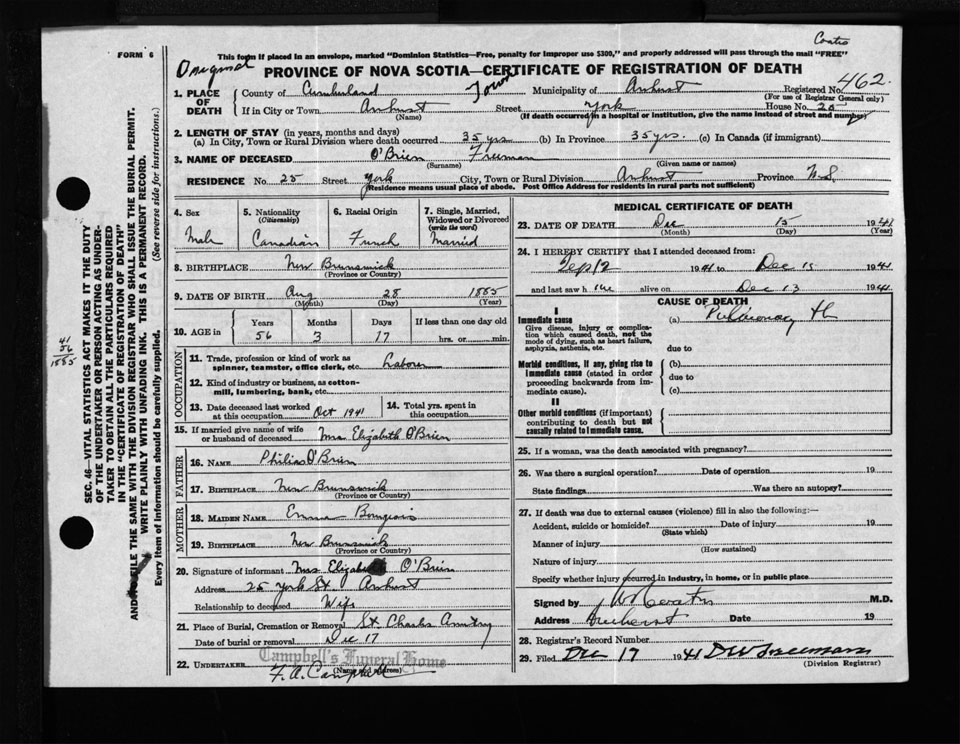 Coates
FORM 6
This form if placed in an envelope, marked "Dominion Statistics—Free, penalty for improper use $300," and properly addressed will pass through the mail "FREE"
Original
PROVINCE OF NOVA SCOTIA—CERTIFICATE OF REGISTRATION OF DEATH
1. PLACE OF DEATH
County of Cumberland Town Municipality of Amherst Registered No. 462
(For use of Registrar General only)
If in City or Town Amherst Street York House No. 25
(Name) (If death occurred in a hospital or institution, give the name instead of street and number)
2. LENGTH OF STAY (in years, months and days)
(a) In City, Town or Rural Division where death occurred 35 yrs (b) In Province 35 yrs. (c) In Canada (if immigrant)
3. NAME OF DECEASED O'Brien Freeman
(Surname) (Given name or names)
RESIDENCE No. 25 Street York City, Town or Rural Division Amherst Province N.S.
(Residence means usual place of abode. Post Office Address for residents in rural parts not sufficient)
4. Sex
Male
5. Nationality
(Citizenship)
Canadian
6. Racial Origin
French
7. Single, Married, Widowed or Divorced
(write the word)
Married
8. BIRTHPLACE New Brunswick
(Province or Country)
9. DATE OF BIRTH Aug 28 1885
(Month) (Day) (Year)
10. AGE in
Years Months Days If less than one day old
56 3 17 hrs. or min.
OCCUPATION
11. Trade, profession or kind of work as spinner, teamster, office clerk, etc. Laborer
12. Kind of industry or business, as cotton-mill, lumbering, bank, etc.
13. Date deceased last worked at this occupation Oct 1941
14. Total yrs. spent in this occupation
15. If married give name of wife or husband of deceased Mrs Elizabeth O'Brien
FATHER
16. NAME Philias O'Brien
17. BIRTHPLACE New Brunswick
(Province or Country)
MOTHER
18. MAIDEN NAME Emma Bourgeois
19. BIRTHPLACE New Brunswick
(Province or Country)
20. Signature of informant Mrs Elizabeth O'Brien
Address 25 York St. Amherst
Relationship to deceased Wife
21. Place of Burial, Cremation or Removal St. Charles
Date of burial or removal Dec 17
Campbell's Funeral Home
22. UNDERTAKER F. A. Campbell
(Name and address)
MEDICAL CERTIFICATE OF DEATH
23. DATE OF DEATH Dec 15 1941
(Month) (Day) (Year)
24. I HEREBY CERTIFY that I attended deceased from:
Sep 12 1941 to Dec 15 1941
and last saw him alive on Dec 13 1941
CAUSE OF DEATH
I
Immediate cause
Give disease, injury or complication which caused death, not the mode of dying, such as heart failure, asphyxia, asthenia, etc.
(a) Pulmonary tb
due to
Morbid conditions, if any, giving rise to immediate cause (stated in order proceeding backwards from immediate cause).
(b)
due to
(c)
II
Other morbid conditions (if important) contributing to death but not causally related to immediate cause.
25. If a woman, was the death associated with pregnancy?
26. Was there a surgical operation? Date of operation 19
State findings Was there an autopsy?
27. If death was due to external causes (violence) fill in also the following:—
Accident, suicide or homicide? Date of injury 19
(State which)
Manner of injury
(How sustained)
Nature of injury
Specify whether injury occurred in industry, in home, or in public place
Signed by M.D.
Address Amherst Date 19
28. Registrar's Record Number
29. Filed Dec 17 1941 D W Freeman
(Division Registrar)
41
56
1885
SEC. 46—VITAL STATISTICS ACT MAKES IT THE DUTY
OF THE UNDERTAKER OR PERSON ACTING AS UNDER-
TAKER TO OBTAIN ALL THE PARTICULARS REQUIRED
IN THE "CERTIFICATE OF REGISTRATION OF DEATH"
AND FILE THE SAME WITH THE DIVISION REGISTRAR WHO SHALL ISSUE THE BURIAL PERMIT.
WRITE PLAINLY WITH UNFADING INK. THIS IS A PERMANENT RECORD.
Every item of information should be carefully supplied. (See reverse side for instructions.)